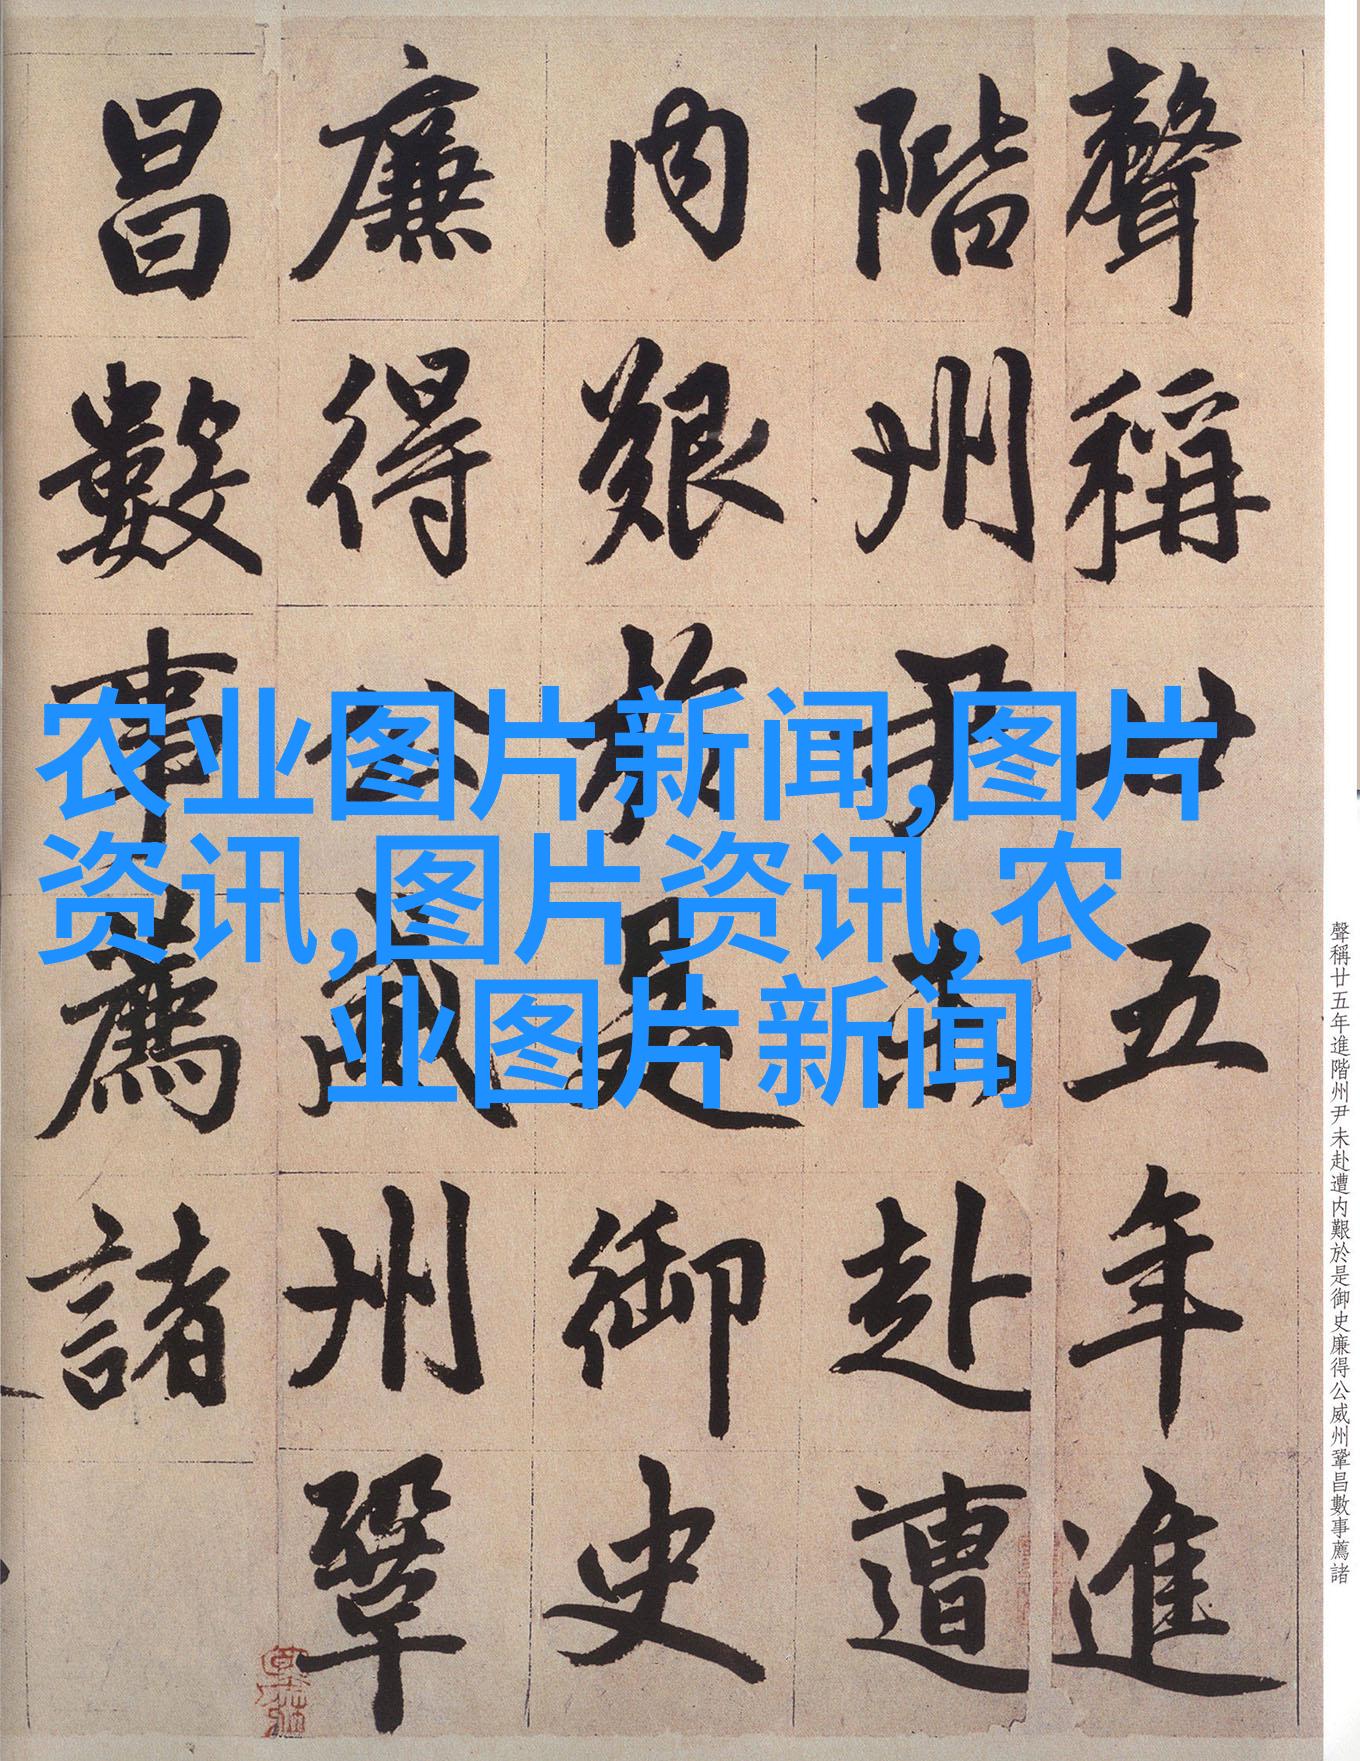 聲稱廿五年進
階州尹未赴遭
内艱於是御史
廉得公威州鞏
昌數事薦諸
农业图片新闻,图片
资讯,图片资讯,农
业图片新闻
聲稱廿五年進階州尹未赴遭内艱於是御史廉得公威州鞏昌數事薦諸